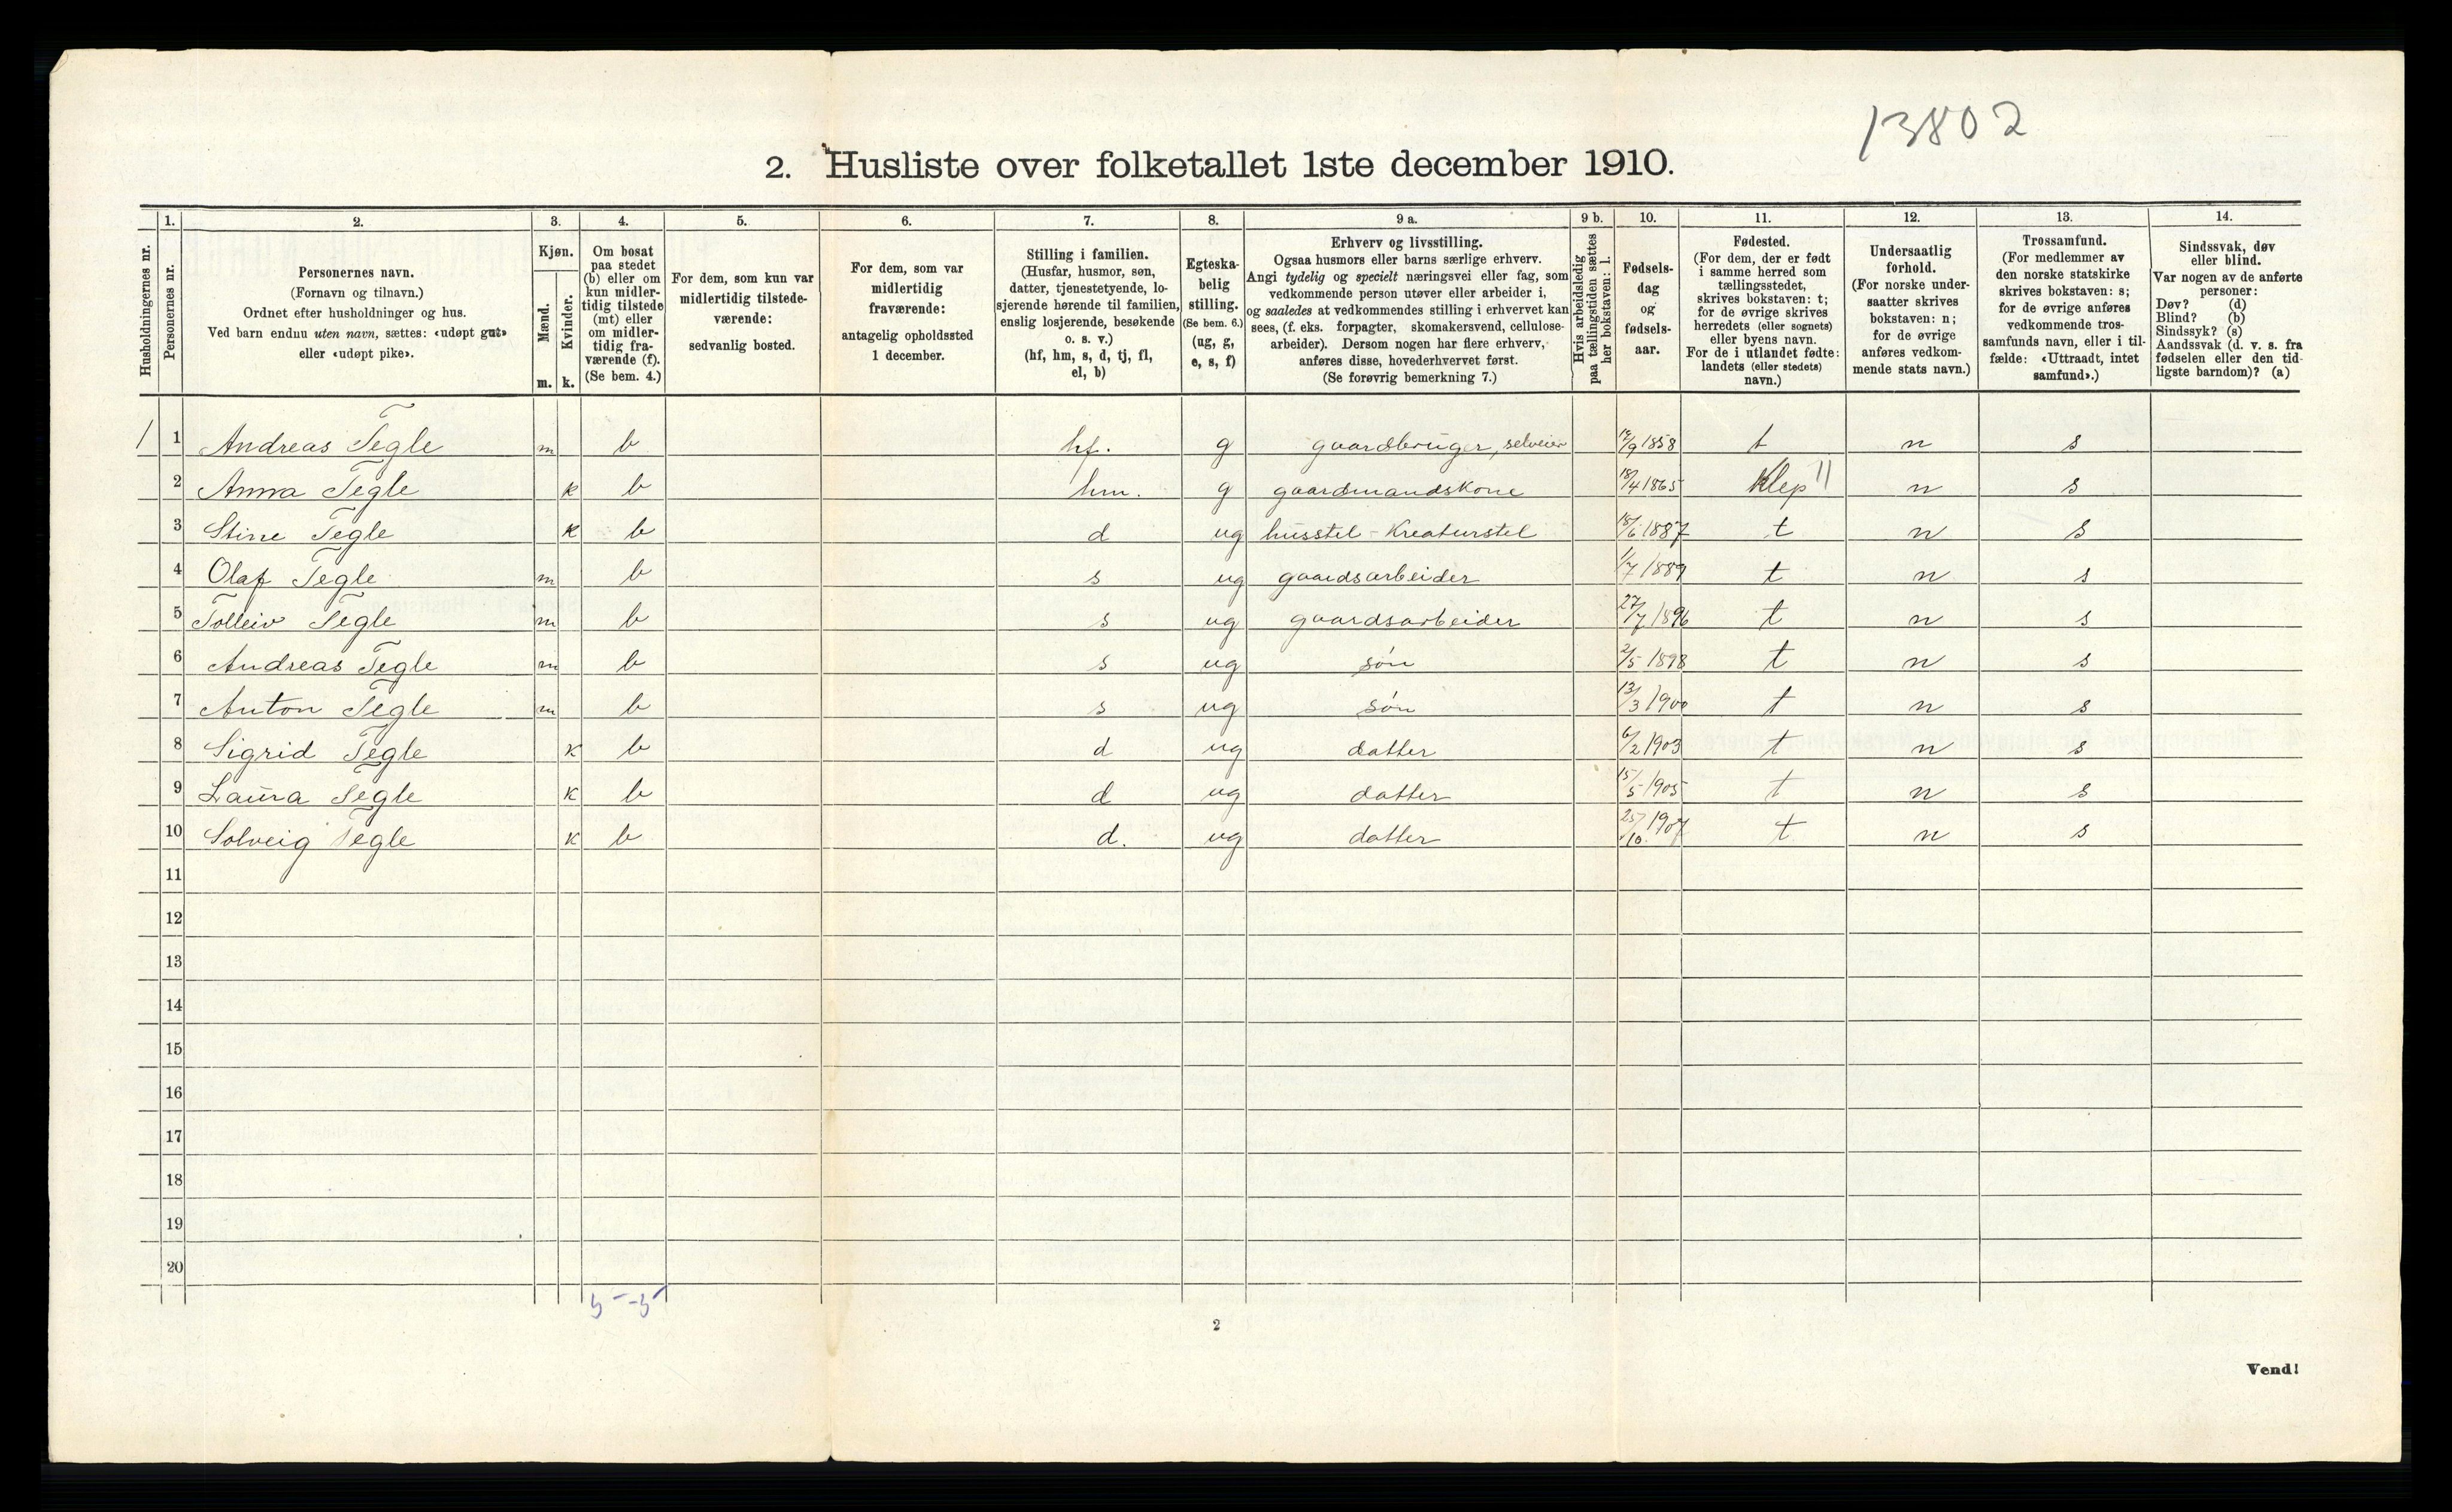 13802
2. Husliste over folketallet 1ste december 1910.
Husholdningernes nr.
1.
Personernes nr.
2.
Personernes navn.
(Fornavn og tilnavn.)
Ordnet efter husholdninger og hus.
Ved barn endnu uten navn, sættes: «udøpt gut»
eller «udøpt pike».
3.
Kjøn.
Mænd.
Kvinder.
m. k.
4.
Om bosat
paa stedet
(b) eller om
kun midler-
tidig tilstede
(mt) eller
om midler-
tidig fra-
værende (f).
(Se bem. 4.)
5.
For dem, som kun var
midlertidig tilstede-
værende:
sedvanlig bosted.
6.
For dem, som var
midlertidig
fraværende:
antagelig opholdssted
1 december.
7.
Stilling i familien.
(Husfar, husmor, søn,
datter, tjenestetyende, lo-
sjerende hørende til familien,
enslig losjerende, besøkende
o. s. v.)
(hf, hm, s, d, tj, fl,
el, b)
8.
Egteska-
belig
stilling.
(Se bem. 6.)
(ug, g,
e, s, f)
9 a.
Erhverv og livsstilling.
Ogsaa husmors eller barns særlige erhverv.
Angi tydelig og specielt næringsvei eller fag, som
vedkommende person utøver eller arbeider i,
og saaledes at vedkommendes stilling i erhvervet kan
sees, (f. eks. forpagter, skomakersvend, cellulose-
arbeider). Dersom nogen har flere erhverv,
anføres disse, hovederhvervet først.
(Se forøvrig bemerkning 7.)
9 b.
Hvis arbeidsledig
paa tællingstiden sættes
her bokstaven: l.
10.
Fødsels-
dag
og
fødsels-
aar.
11.
Fødested.
(For dem, der er født
i samme herred som
tællingsstedet,
skrives bokstaven: t;
for de øvrige skrives
herredets (eller sognets)
eller byens navn.
For de i utlandet fødte:
landets (eller stedets)
navn.)
12.
Undersaatlig
forhold.
(For norske under-
saatter skrives
bokstaven: n;
for de øvrige
anføres vedkom-
mende stats navn.)
13.
Trossamfund.
(For medlemmer av
den norske statskirke
skrives bokstaven: s;
for de øvrige anføres
vedkommende tros-
samfunds navn, eller i til-
fælde: «Uttraadt, intet
samfund».)
14.
Sindssvak, døv
eller blind.
Var nogen av de anførte
personer:
Døv? (d)
Blind? (b)
Sindssyk? (s)
Aandssvak (d. v. s. fra
fødselen eller den tid-
ligste barndom)? (a)
1 1 Andreas Tegle m b hf. g gaardbruger, selveier /9 1858 t n s
2 Anna Tegle k b hm. g gaardmandskone 18/4 1865 Klep 11 n s
3 Stine Tegle k b d ug husstel - Kreaturstel 18/6 1887 t n s
4 Olaf Tegle m b s ug gaardsarbeider 1/7 1889 t n s
5 Tolleiv Tegle m b s ug gaardsarbeider 27/7 1896 t n s
6 Andreas Tegle m b s ug søn 2/5 1898 t n s
7 Anton Tegle m b s ug søn 13/3 1900 t n s
8 Sigrid Tegle k b d ug datter 6/2 1903 t n s
9 Laura Tegle k b d ug datter 15/5 1905 t n s
10 Solveig Tegle k b d. ug datter 25/10. 1907 t n s
11
12
13
14
15
16
17
18
19
20
5 - 5
2
Vend!